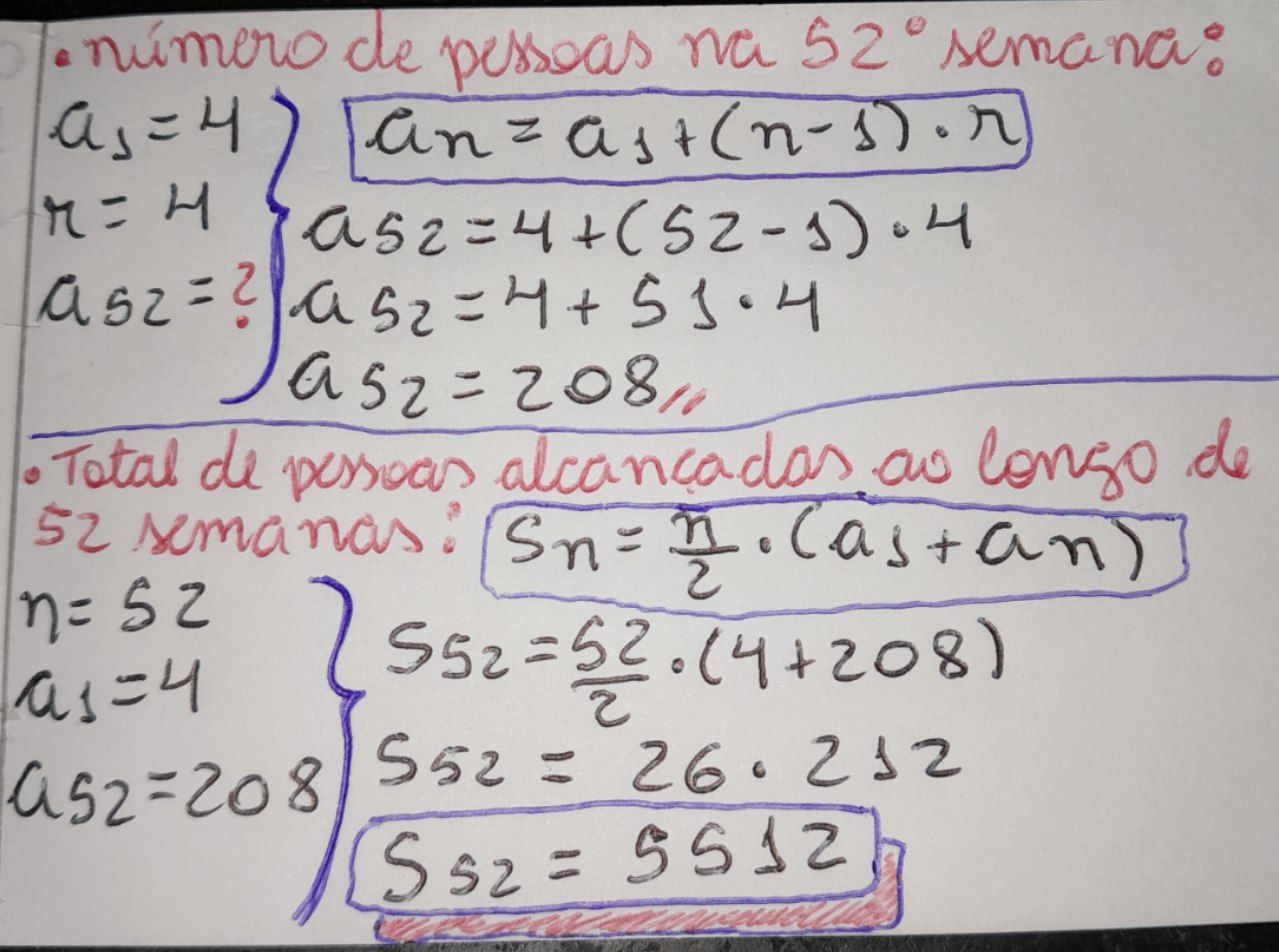 • número de pessoas na 52° semana:
a1 = 4
r = 4
a52 = ?
an = a1 + (n - 1) . r
a52 = 4 + (52 - 1) . 4
a52 = 4 + 51 . 4
a52 = 208,,
• Total de pessoas alcançadas ao longo de
52 semanas:
Sn = n/2 . (a1 + an)
n = 52
a1 = 4
a52 = 208
S52 = 52/2 . (4 + 208)
S52 = 26 . 212
S52 = 5512